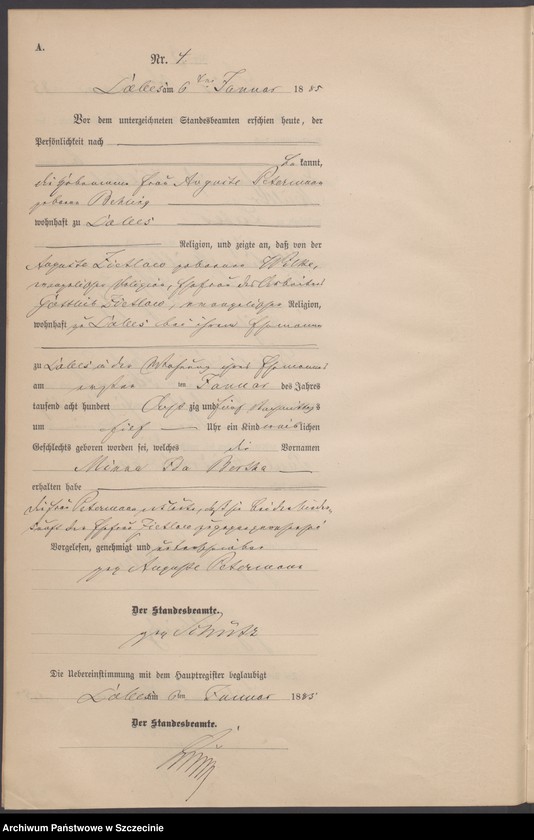 A.
Nr. 4
Labes am 6ten Januar 1885
Vor dem unterzeichneten Standesbeamten erschien heute, der
Persönlichkeit nach
be kannt,
die Hebamme Frau Auguste Petermann
geborene
wohnhaft zu Labes
Religion, und zeigte an, daß von der
Auguste Zietlow geborenen Wilke,
evangelischer Religion, Ehefrau des Arbeiters
Gottlieb Zietlow, evangelischer Religion,
wohnhaft zu Labes bei ihrem Ehemanne
zu Labes in der Wohnung ihres Ehemannes
am ersten im Januar des Jahres
tausend acht hundert Acht zig und fünf Nachmittags
um fünf Uhr ein Kind weiblichen
Geschlechts geboren worden sei, welches die Vornamen
Minna Ida Bertha
erhalten habe
die Frau Petermann erklärte, daß sie bei der Nieder-
kunft der Ehefrau Zietlow zugegen gewesen sei
Vorgelesen, genehmigt und unterschrieben
gez Auguste Petermann
Der Standesbeamte.
gez Schütz
Die Uebereinstimmung mit dem Hauptregister beglaubigt
Labes am 6ten Januar 1885
Der Standesbeamte.
Archiwum Państwowe w Szczecinie